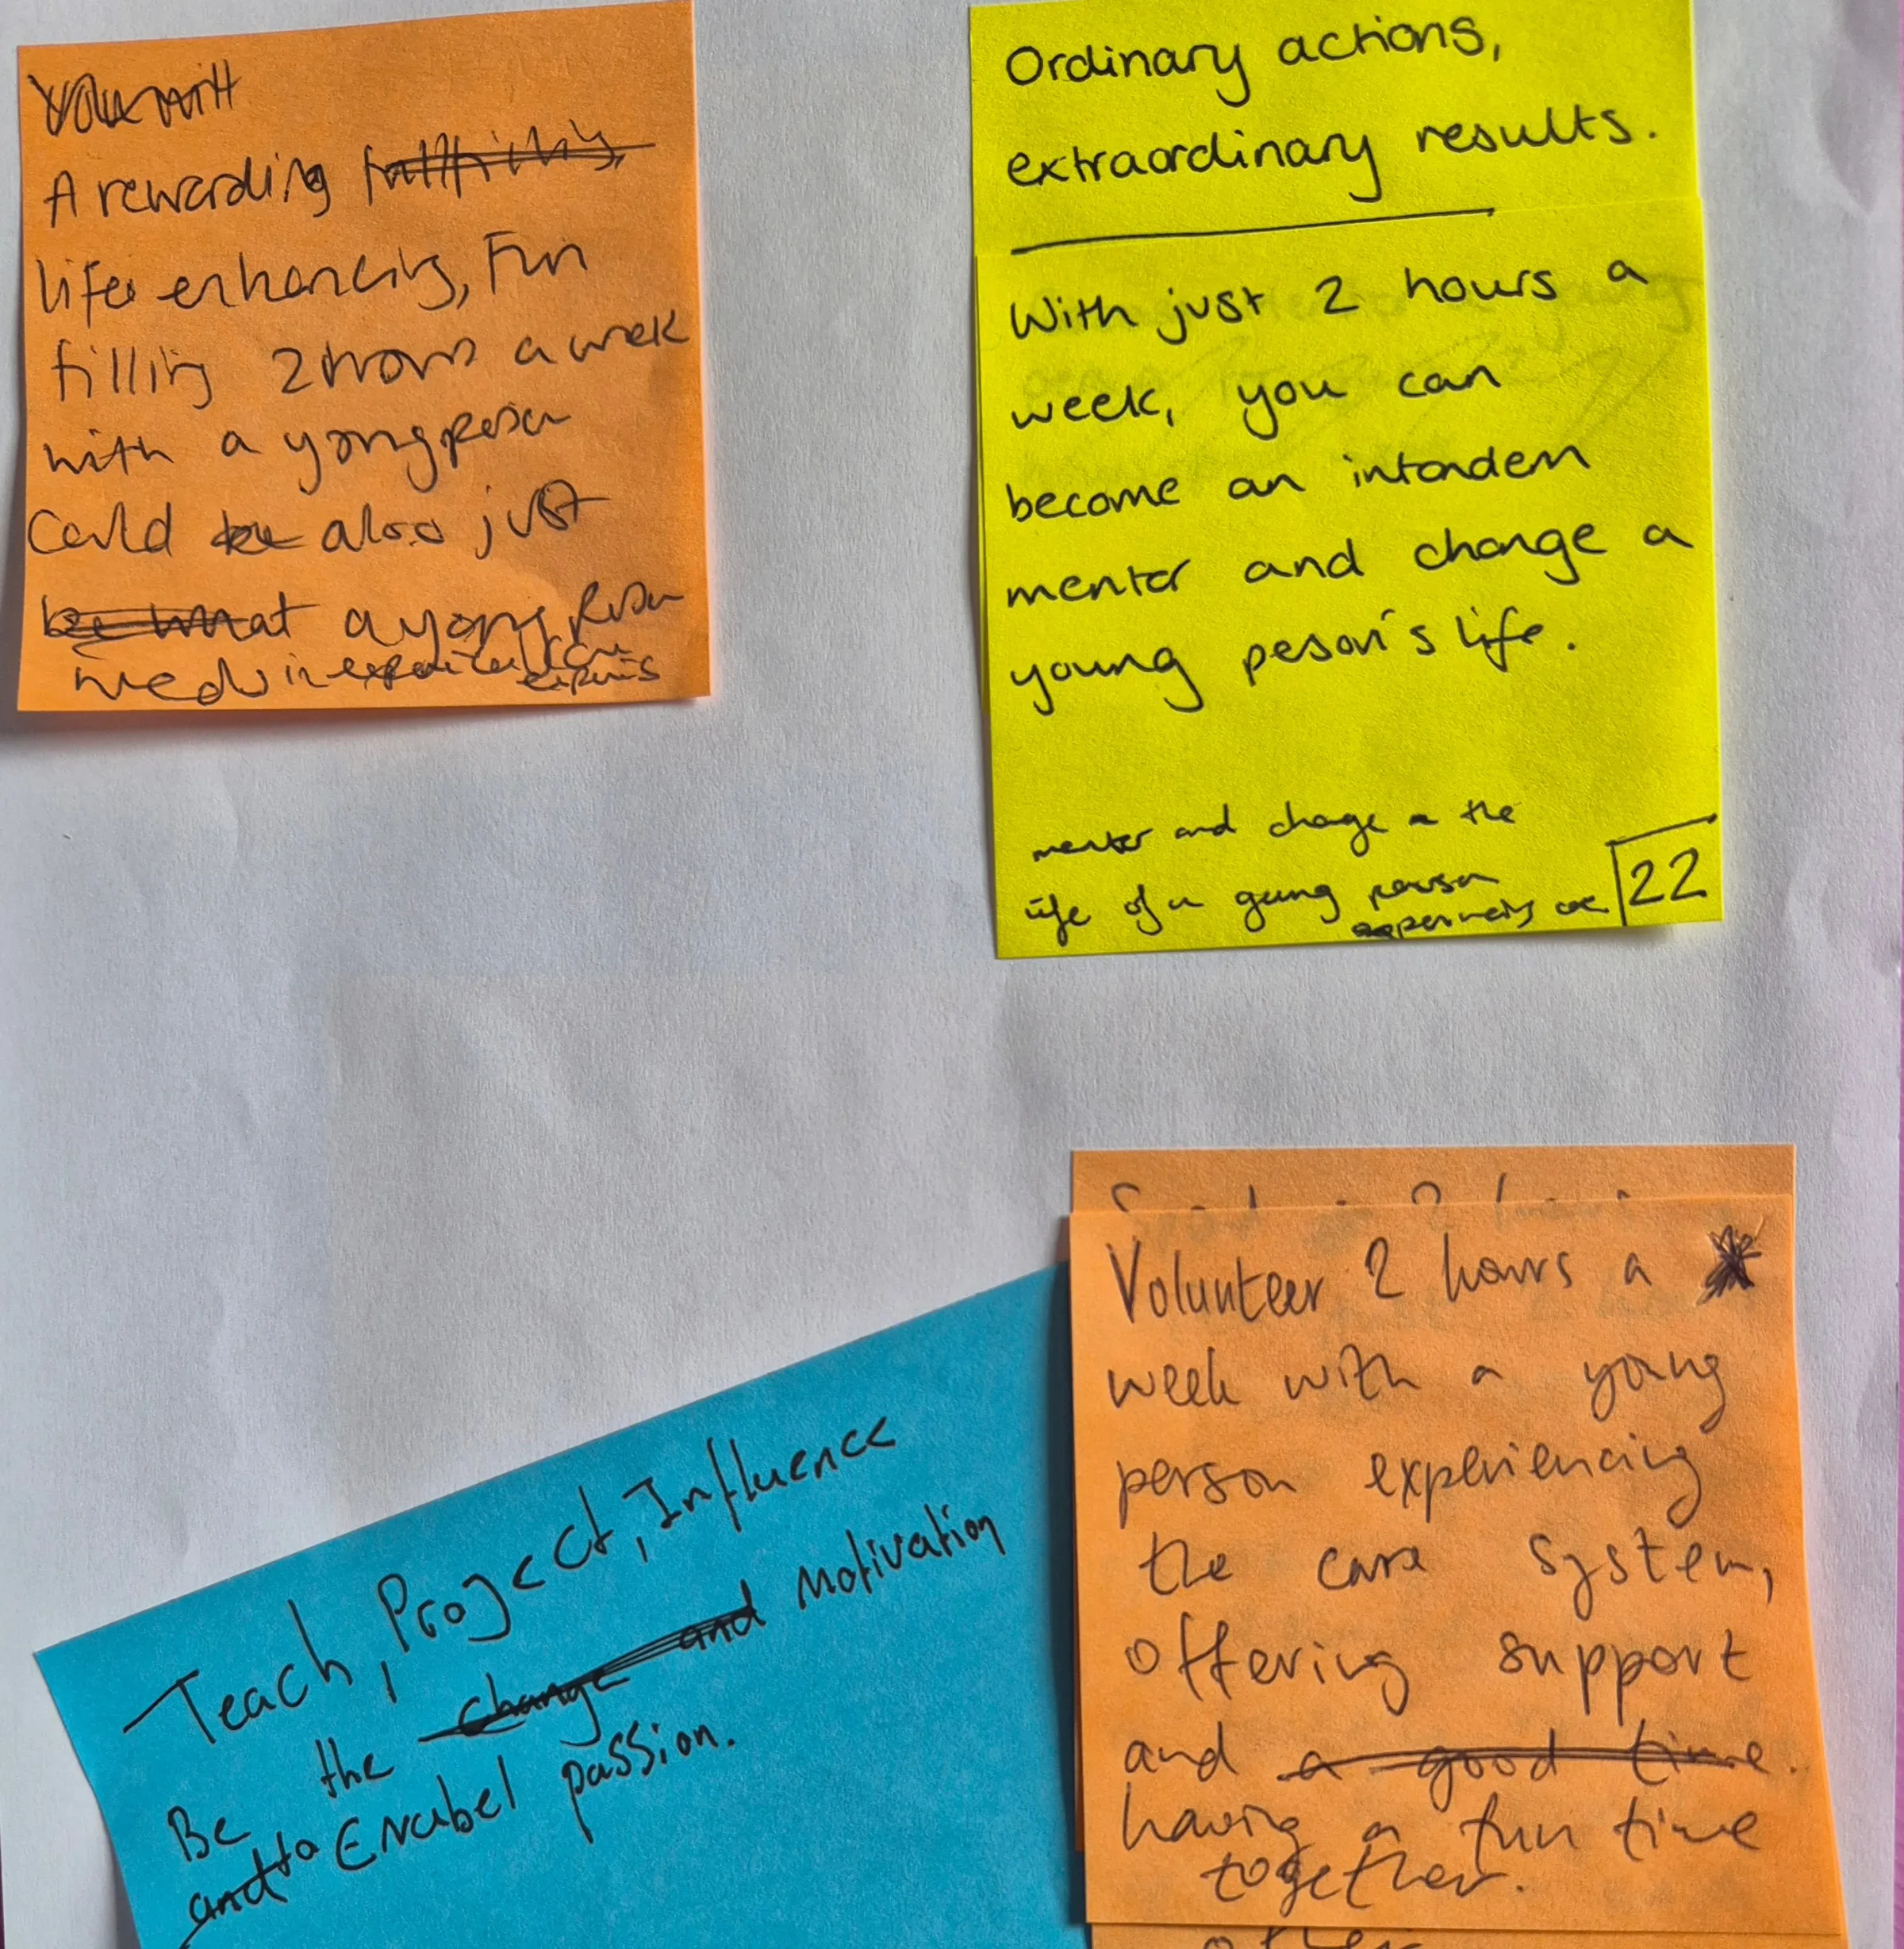 A rewarding
life enhancing, Fun
filling 2 hours a week
with a yong person
Could also just
a yong Person
need in
Ordinary actions,
extraordinary results.
With just 2 hours a
week, you can
become an intandem
mentor and change a
young peson's life.
mentor and change a the
life of a young person
22
Teach, Project, Influence
Be the change and Motivation
and to Enabel passion.
Spend 2 hours
Volunteer 2 hours a
week with a young
person experiencing
the care system,
offering support
and a good time.
having a fun time
together.